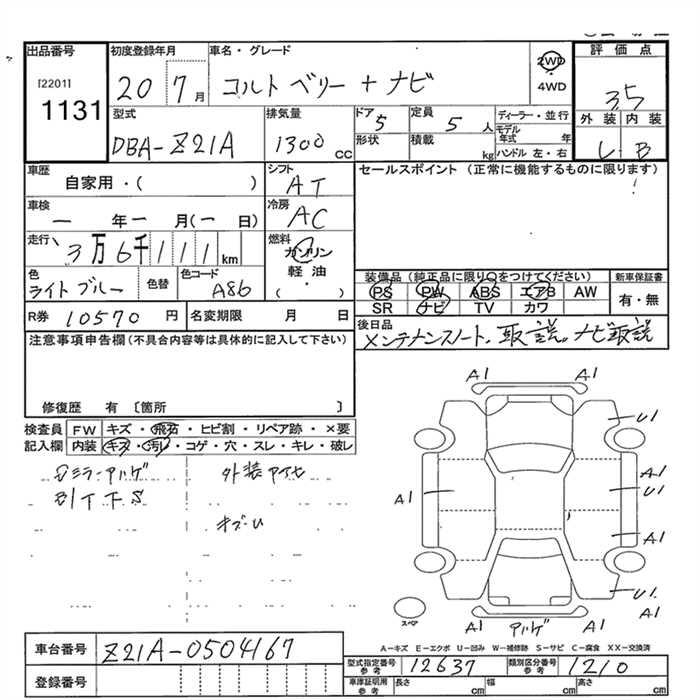 出品番号 初度登録年月 車名・グレード 評価点
[2201] 1131
20 7月 コルト ベリー + ナビ 2WD 3.5
4WD
型式 排気量 ドア 定員 ディーラー・並行 外装 内装
DBA-Z21A 1300cc 5 5人 モデル年式 年
形状 積載 kg ハンドル 左・右 B
車歴 シフト セールスポイント(正常に機能するものに限ります)
自家用・( ) AT
車検 冷房
一年一月(一日) AC
走行 燃料
3万6千111km ガソリン
軽油
・
( )
色 色替 色コード 装備品(純正品に限り○をつけてください) 新車保証書
ライトブルー A86 PS PW ABS エアB AW 有・無
SR ナビ TV カワ
R券 10570円 名変期限 月 日 後日品
メンテナンスノート、取説、ナビ取説
注意事項申告欄(不具合内容等は具体的に記入して下さい)
修復歴 有〔箇所 〕
検査員 FW キズ・飛石・ヒビ割・リペア跡・×要
記入欄 内装 キズ・汚れ・コゲ・穴・スレ・キレ・破レ
外装
A1 A1
U1
A1
A1 U1
A1
U1
スペア A1 A1 A1
A-キズ E-エクボ U-凹み W-補修跡 S-サビ C-腐食 XX-交換済
車台番号 Z21A-0504167
登録番号
型式指定番号 参考 12637 類別区分番号 参考 1210
車庫証明用 参考 長さ cm 幅 cm 高さ cm